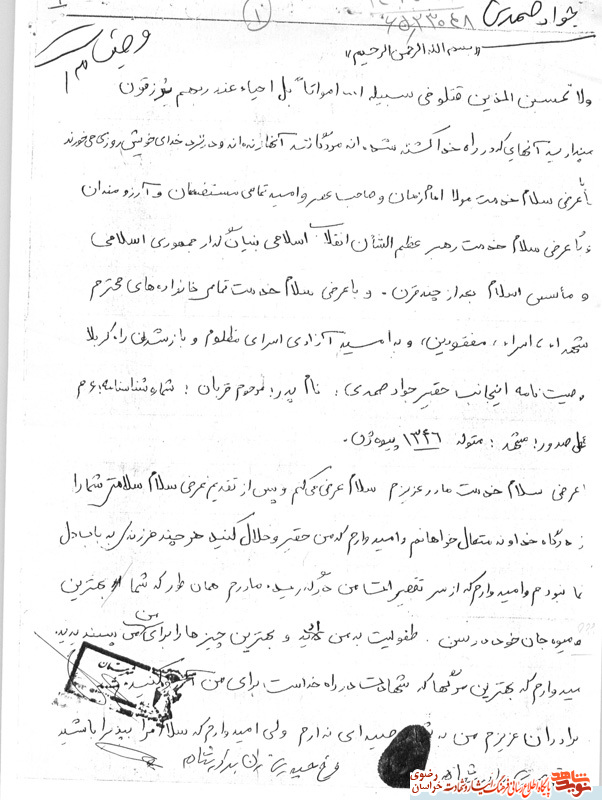 جواد صمدی
۱
۶۵۲۳۰۴۸
وصیتنامه
"بسم الله الرحمن الرحیم"
ولا تحسبن الذین قتلو فی سبیله الله امواتاً بل احیاء عند ربهم یرزقون
مپندارید آنهایی که در راه خدا کشته شده اند مردگانند آنها زنده اند و در نزد خدای خویش روزی می خورند
با عرض سلام خدمت مولا امام زمان و صاحب عصر و امید تمامی مستضعفان و آرزومندان
و با عرض سلام خدمت رهبر عظیم الشأن انقلاب اسلامی بنیانگذار جمهوری اسلامی
و مأسس اسلام بعد از چند قرن. و با عرض سلام خدمت تمامی خانواده های محترم
شهداء، اسراء، مفقودین، و به امید آزادی اسرای مظلوم و باز شدن راه کربلا
وصیت نامه اینجانب حقیر جواد صمدی: نام پدر: مرحوم قربان: شماره شناسنامه: ۶۰م
محل صدور: مشهد: متولد ۱۳۴۶ پیوه ژن.
عرض سلام خدمت مادر عزیزم سلام عرض می کنم و پس از تقدیم عرض سلام سلامتی شما را
از درگاه خداوند متعال خواهانم و امیدوارم که من حقیر و حلال کنید هر چند فرزندی به باب دل
شما نبودم و امیدوارم که از سر تقصیرات من درگذرید. مادرم همان طور که شما بهترین
میوه جان خود در سن طفولیت به من دادید و بهترین چیزها را برای من پسند بدید.
امیدوارم که بهترین مرگها که شهادت در راه خداست برای من آرزو کنید.
برادران عزیزم من به شما وصیه ای ندارم ولی امیدوارم که سلام مرا پذیرا باشید
گلستان
شاهد
نوید
رضوی
پایگاه اطلاع رسانی فرهنگ ایثار و شهادت خراسان